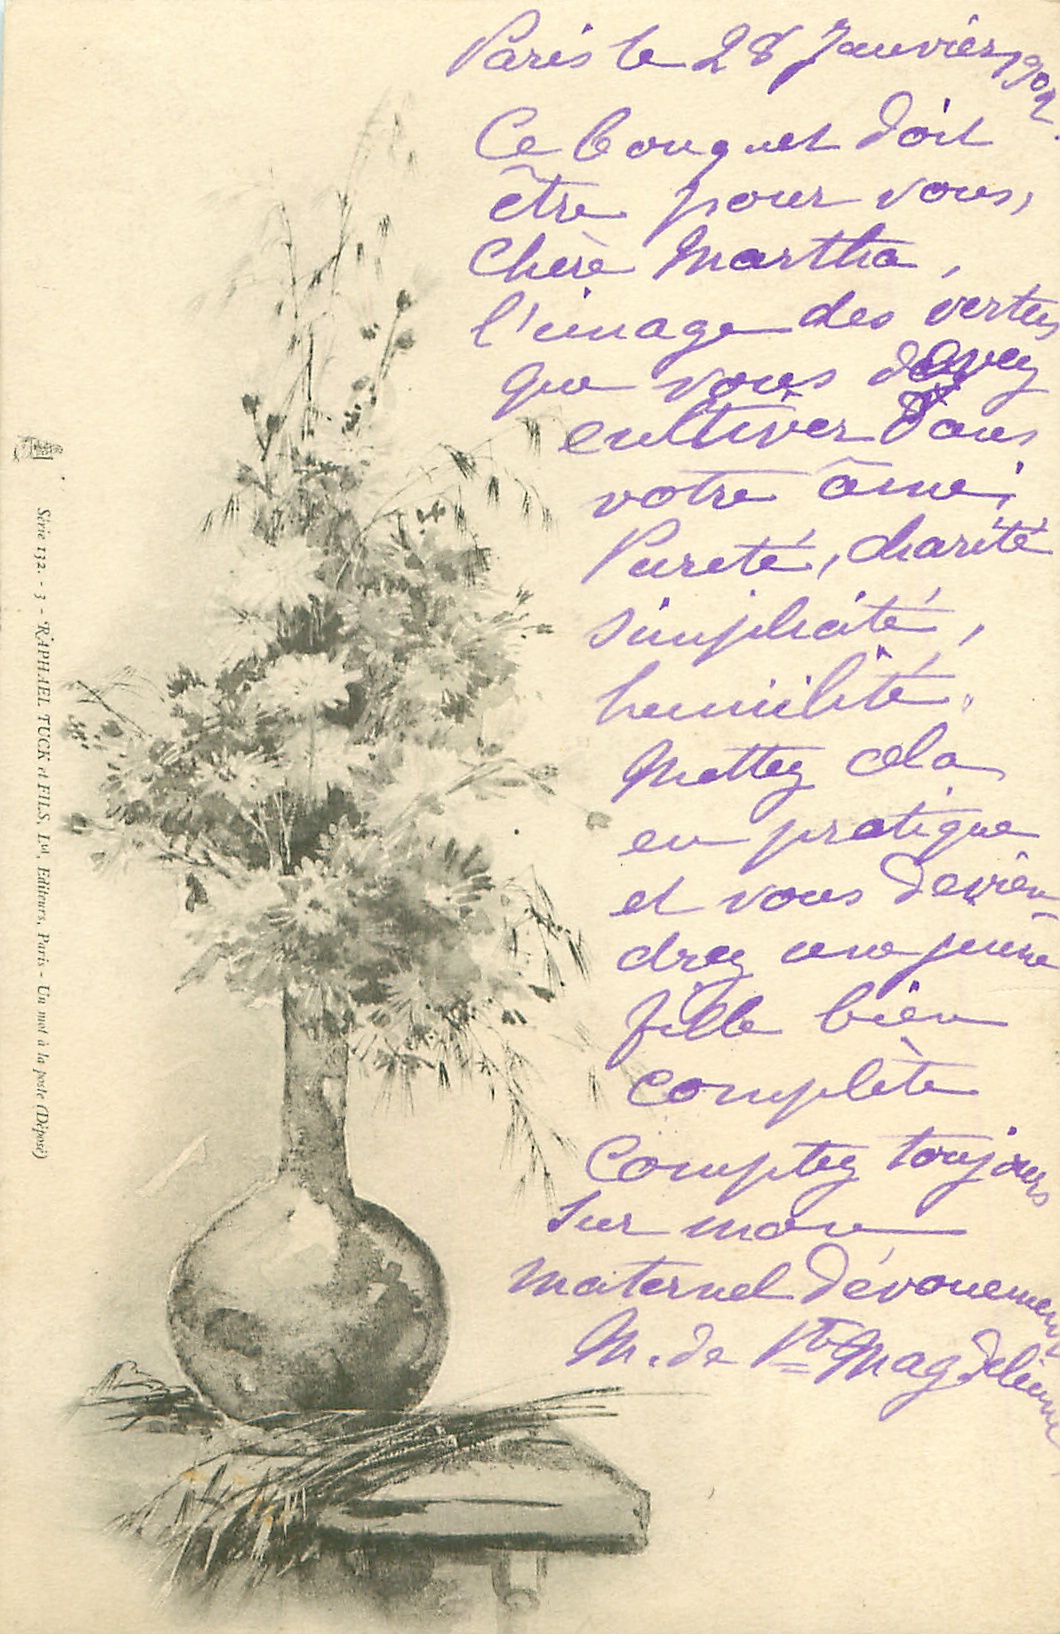 Paris le 28 Janvier 1902.
Ce bouquet doit
être pour vous,
Chère Martha,
l'image des vertus
que vous devez
cultiver dans
votre âme;
Pureté, charité
simplicité,
humilité.
Mettez cela
en pratique
et vous devien-
drez une jeune
fille bien
complète
Comptez toujours
sur mon
maternel dévouement
M. de Ste Magdeleine
Série 132. - 3 - RAPHAEL TUCK et FILS, Ltd, Editeurs, Paris - Un mot à la poste (Déposé)